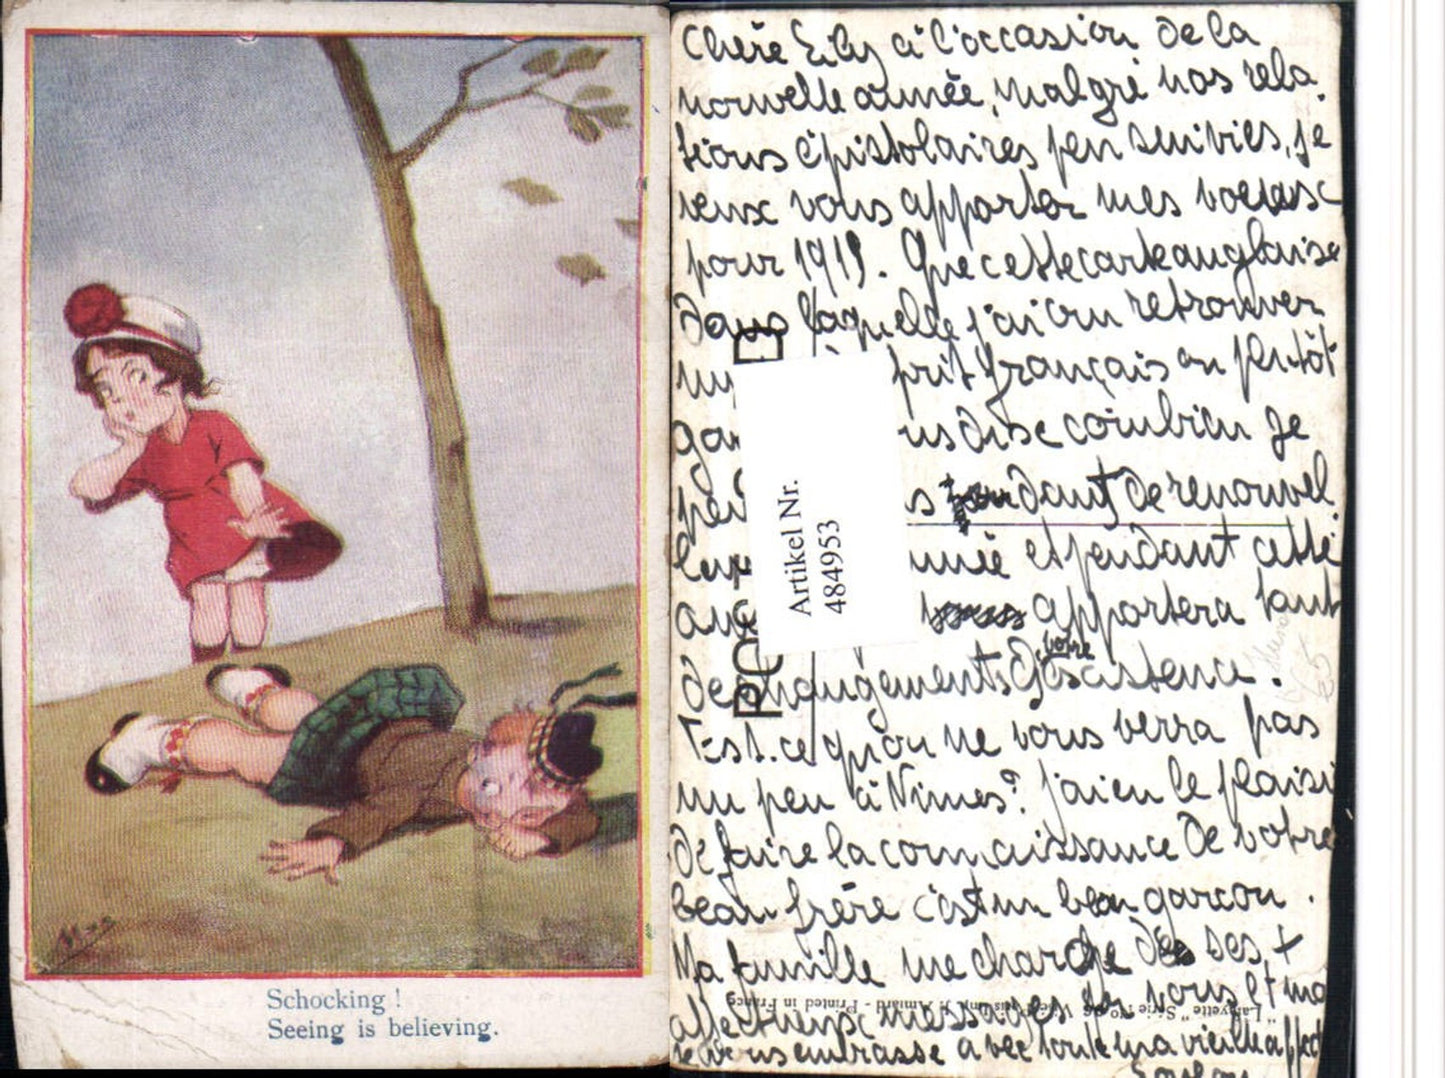 Schocking !
Seeing is believing.
Chère à l'occasion de la
nouvelle année, malgré nos rela
tions épistolaires peu suivies, je
veux vous apporter mes voeux
pour 1919. Que cette carte anglaise
dans laquelle j'ai cru retrouver
français ou plutôt
dise combien je
dant de renouvel
et pendant cette
apportera tant
de changements votre existence.
Est-ce qu'on ne vous verra pas
un peu à Nîmes? j'ai eu le plaisi
de faire la connaissance de votre
beau frère c'est un beau garçon.
Ma famille me charge de ses +
affectueux messages vous et moi
je vous embrasse avec toute ma vieille affect
POS
D
Artikel Nr.
484953
"Lafayette" Série No 36
J. Amiard - Printed in France